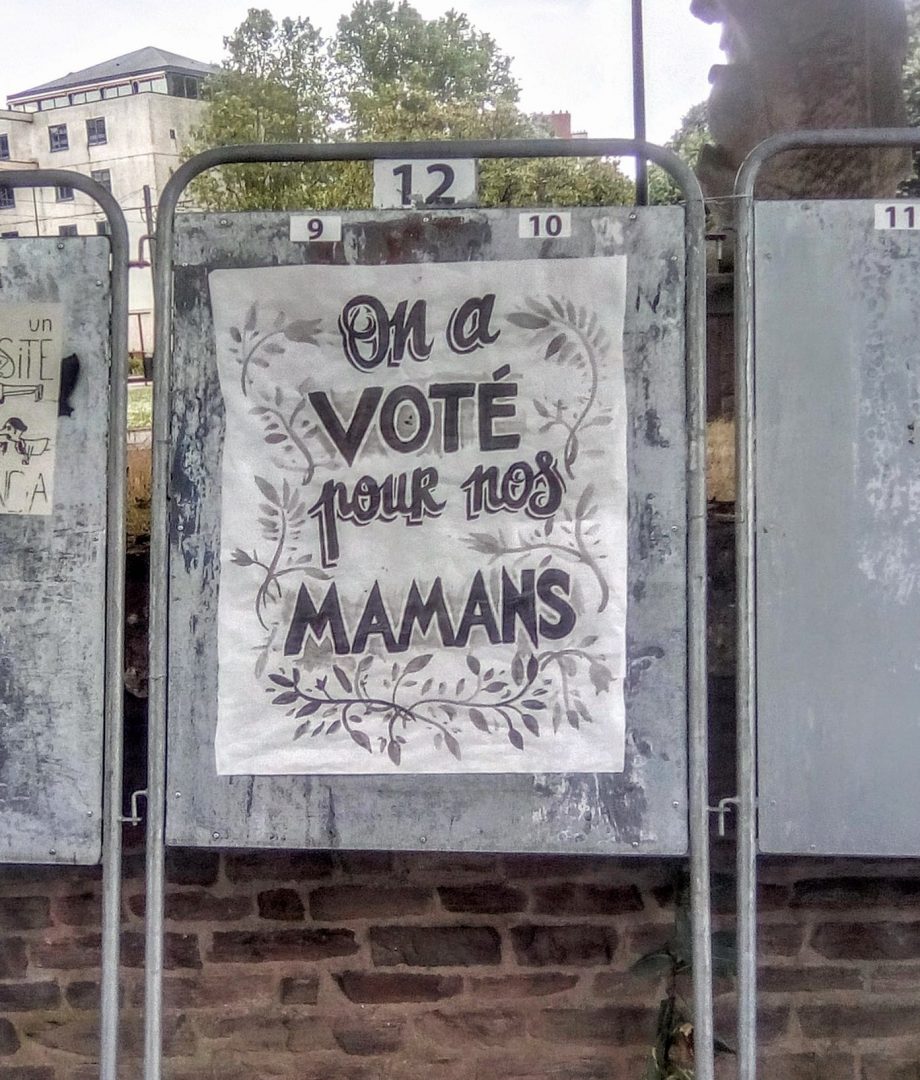 12
9
10
11
On a
VOTÉ
pour nos
MAMANS
un
SiTE